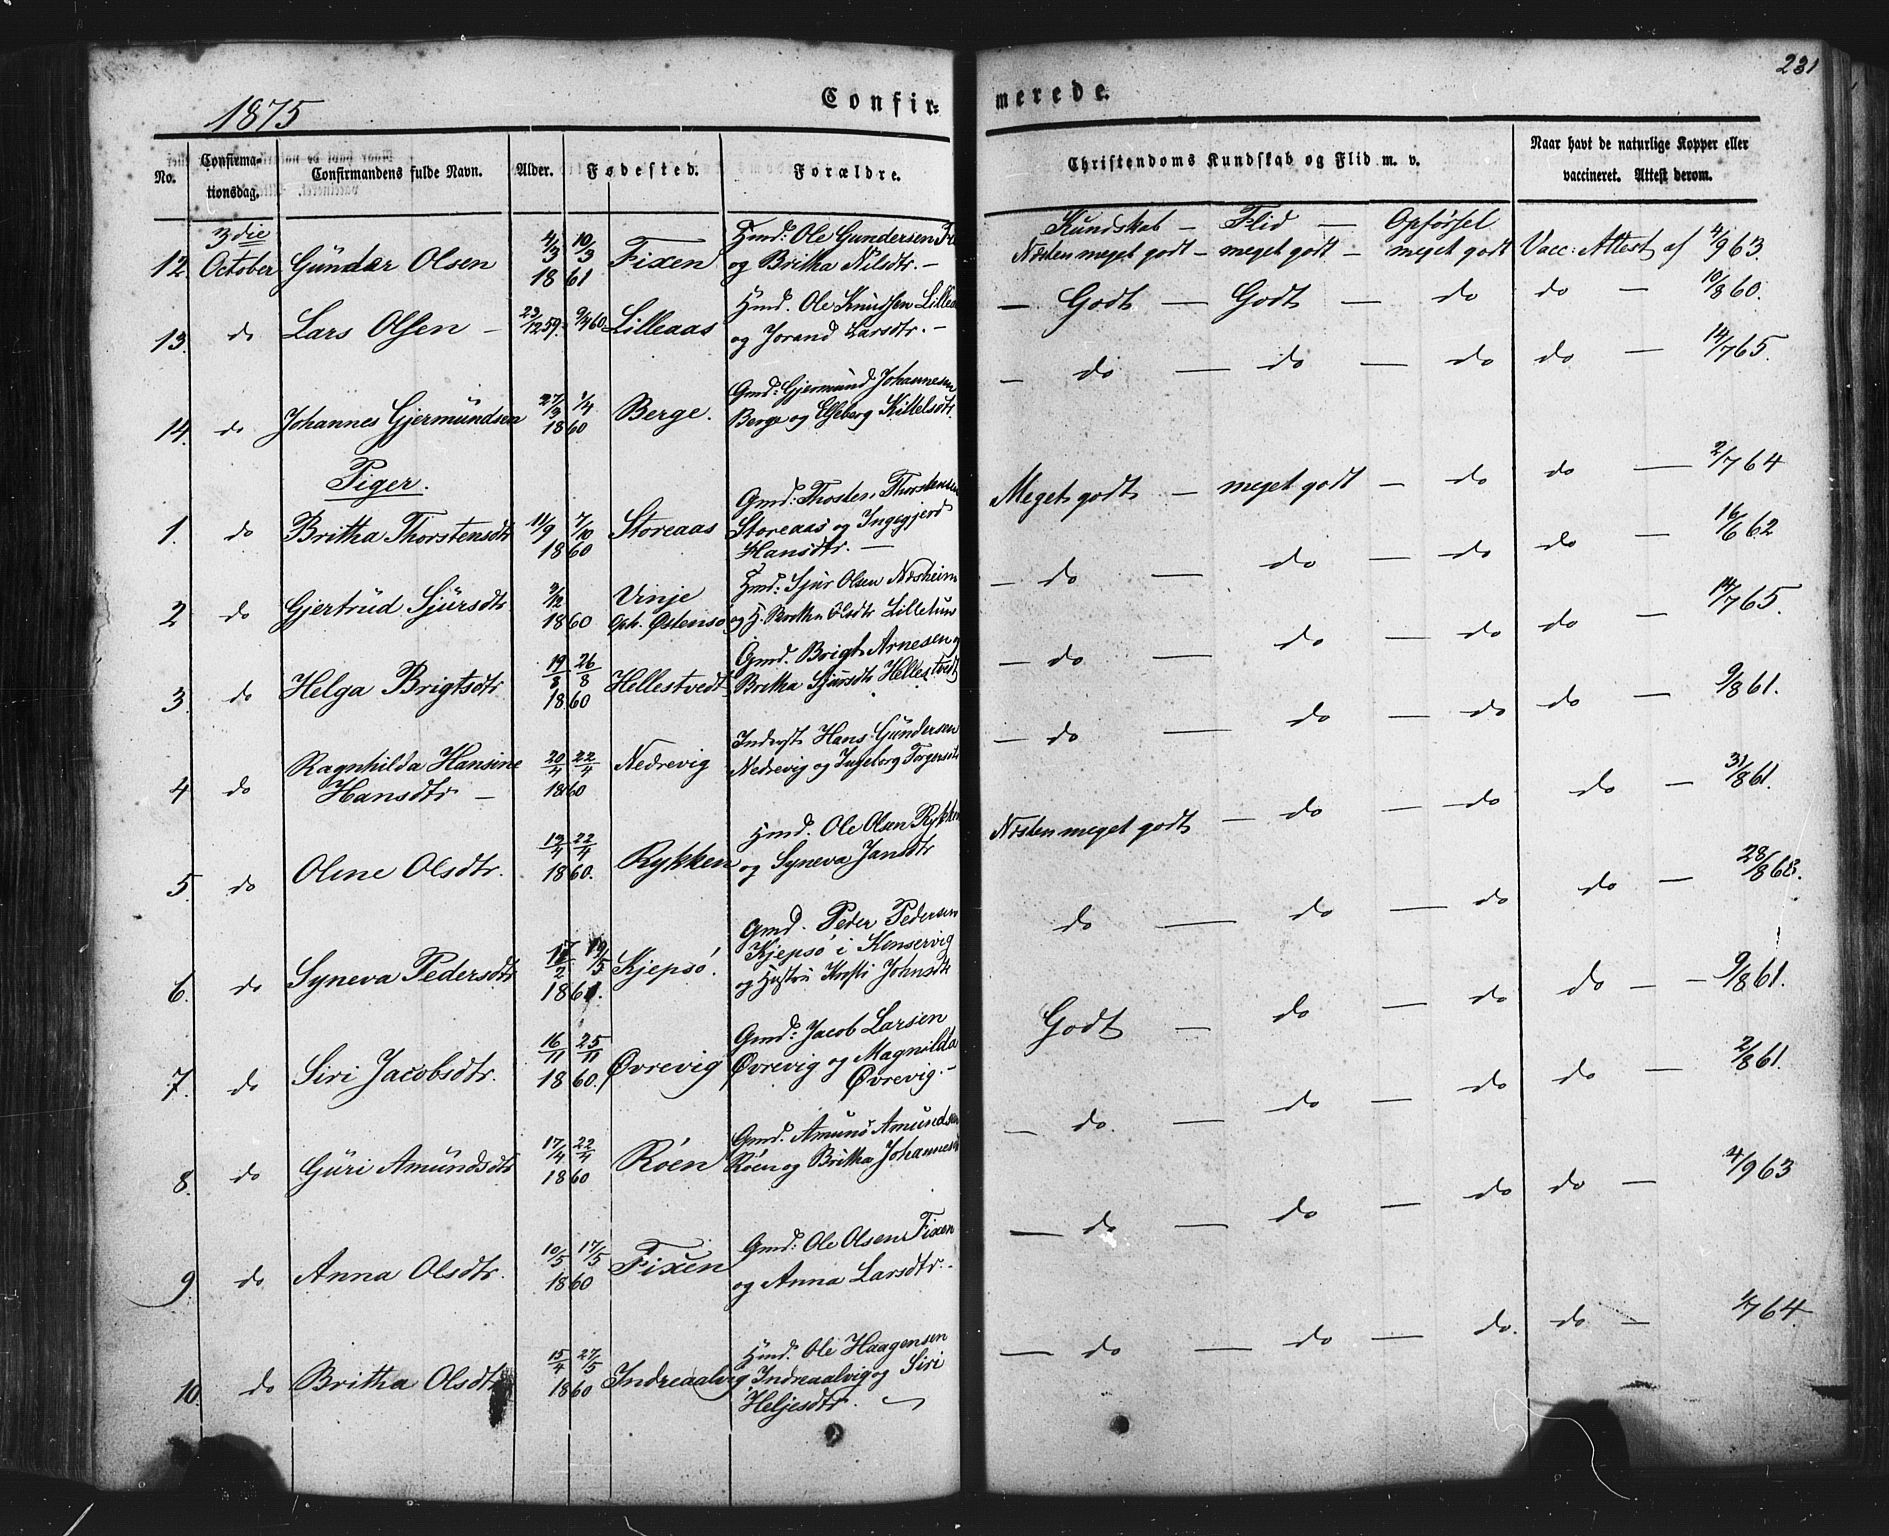 231
1875
Confir-
merede.
No.
Confirma-
tionsdag.
Confirmandens fulde Navn.
Alder.
Fødested.
Forældre.
Christendoms Kundskab og Flid m. v.
Naar havt de naturlige Kopper eller
vaccineret. Attest derom.
Kundskab — Flid — Opførsel
12. 3die October Gündar Olsen 4/3 10/3 1861 Fixen Hmd: Ole Gundersen
og Britha Nilsdtr. — Næsten meget godt — meget godt — meget godt Vacc: Attest af 4/9 63.
13. do Lars Olsen — 23/12 59. 9/4 60 Lilleaas Hmd. Ole Knudsen
og Jorand Larsdtr. — — Godt — Godt — do do — 10/8 60.
14. do Johannes Gjermündsen 27/3 1/4 1860 Berge. Gmd: Gjermünd Johannesen
Berge og Kittelsdtr. — do — do — do do — 14/7 65.
Piger.
1. do Britha Thorstensdtr 11/9 7/10 1860 Storeaas Gmd: Thosten Thorstensen
Storeaas og Ingegjerd
Hansdtr. — Meget godt — meget godt — do do — 2/7 64
2 do Gjertrüd Sjürsdtr 2/12 1860 Vinje
oph. Østensø Hmd: Sjur Olsen Næsheim
og H. Britha Olsdtr Lilletun — do — do — do do — 16/6 62
3. do Helga Brigtsdtr 19/8 26/8 1860 Hellestvedt Gmd. Brigt Arnesen og
Britha Sjürsdtr Hellestvedt — do — do — do do — 14/7 65.
4 do Ragnhilda Hansine
Hansdtr — 20/4 22/4 1860 Nedrevig Inderst Hans Gündersen
Nedrevig og Ingeborg Torgersdtr — do — do — do do — 9/8 61.
5. do Oline Olsdtr. 22/4 1860. Rykken Hmd. Ole Olsen Rykken
og Syneva Jansdtr Næsten meget godt — do — do do — 31/8 61.
6. do Syneva Pedersdtr 19/5 1861. Kjepsö. Gmd. Peder Pedersen
Kjepsö i Kinservig
og Hustru Johnsdtr do — do — do do — 28/8
7. do Siri Jacobsdtr. 16/11 25/11 1860. Øvrevig Gmd: Jacob Larsen
Øvrevig og Magnilda
Øvrevig. — Godt — do — do do — 9/8 61.
8. do Güri Amündsdtr 17/4 22/4 1860 Röen Gmd. Amünd Amündsen
Röen og Britha — do. — do — do do — 2/8 61.
9. do Anna Olsdtr. 10/5 17/5 1860 Fixen Gmd: Ole Olsen Fixen
og Anna Larsdtr. — — do — do — do do — 4/9 63
10. do Britha Olsdtr 15/4 27/5 1860 Indreaalvig Hmd. Ole Haagensen
Indreaalvig og Siri
Heljesdtr. — — do — do — do. do — /7 64.